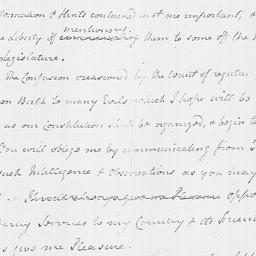 formation & Hints contained in it are important, &
mentioning
e liberty of communicating them to some of the
Legislature.
The Confusion occasioned by the want of regular
on Birth to many Evils which I hope will be
as our Constitution shall be organized, & begin t
You will oblige me by communicating from
such Intelligence & Observations as you may
I would always give me Pleasure oppo
Services to my Country & its Friend
s give me Pleasure.